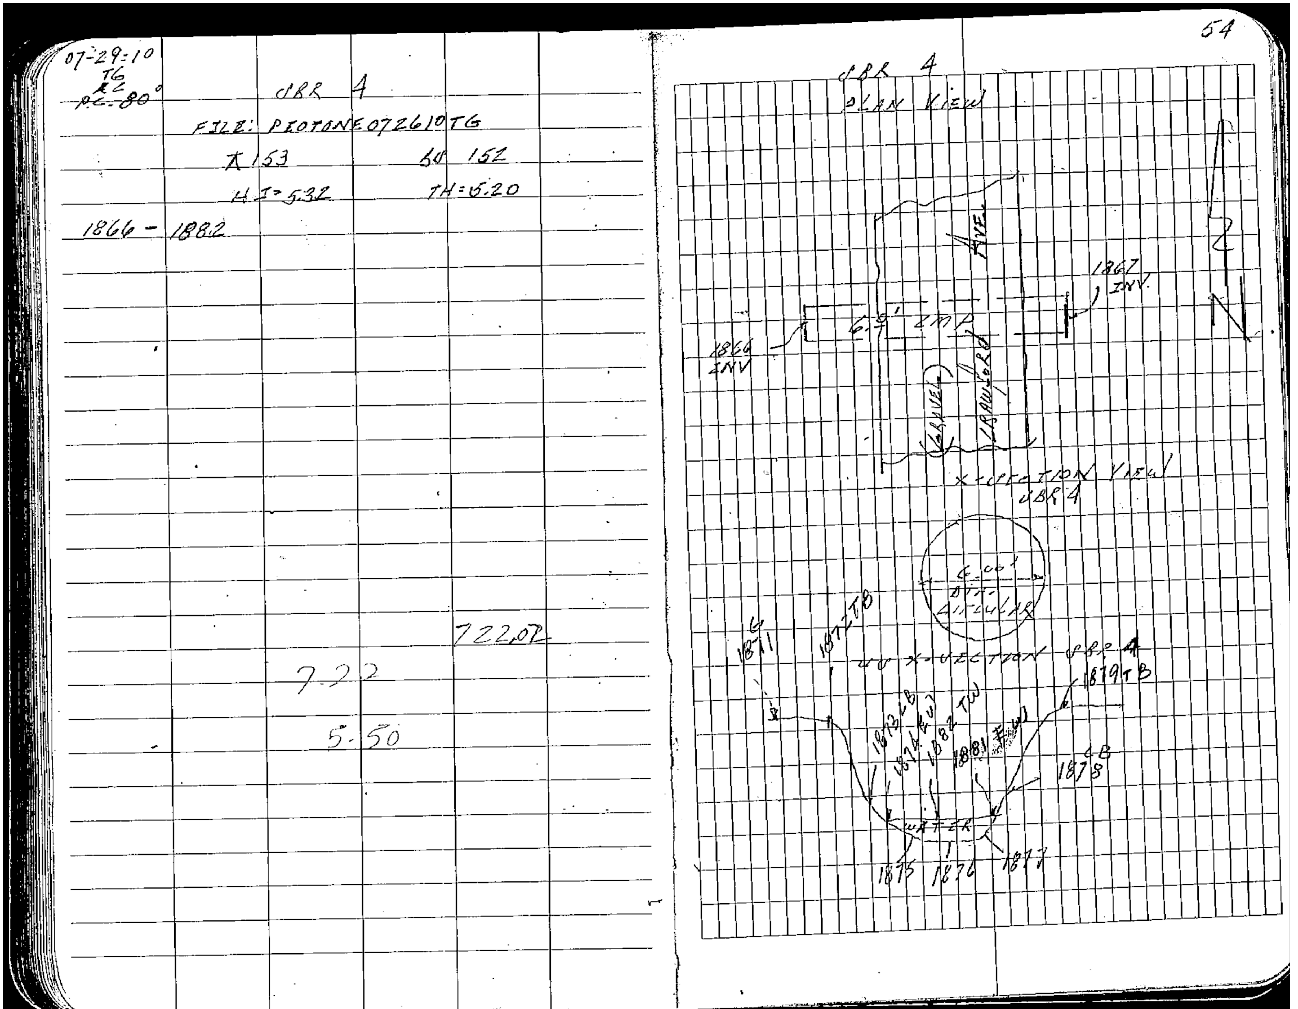 07-29-10
TG
RC
PC-80°
SBR 4
FILE: PEOTONE072610TG
⊼ 153
BS 152
H.I=5.32
TH=5.20
1866 - 1882
722.02
7.22
5.50
54
SBR 4
PLAN VIEW
AVE.
1867
INV.
CMP
1866
INV
(GRAVEL)
CRAWFORD
N
X-SECTION VIEW
SBR 4
6.00'
DIA.
CIRCULAR
G
1871
1872 TB
X-SECTION SBR 4
1879 TB
1873 CB
1874 EW
1882 TW
1881 EW
CB
1878
WATER
1875
1876
1877